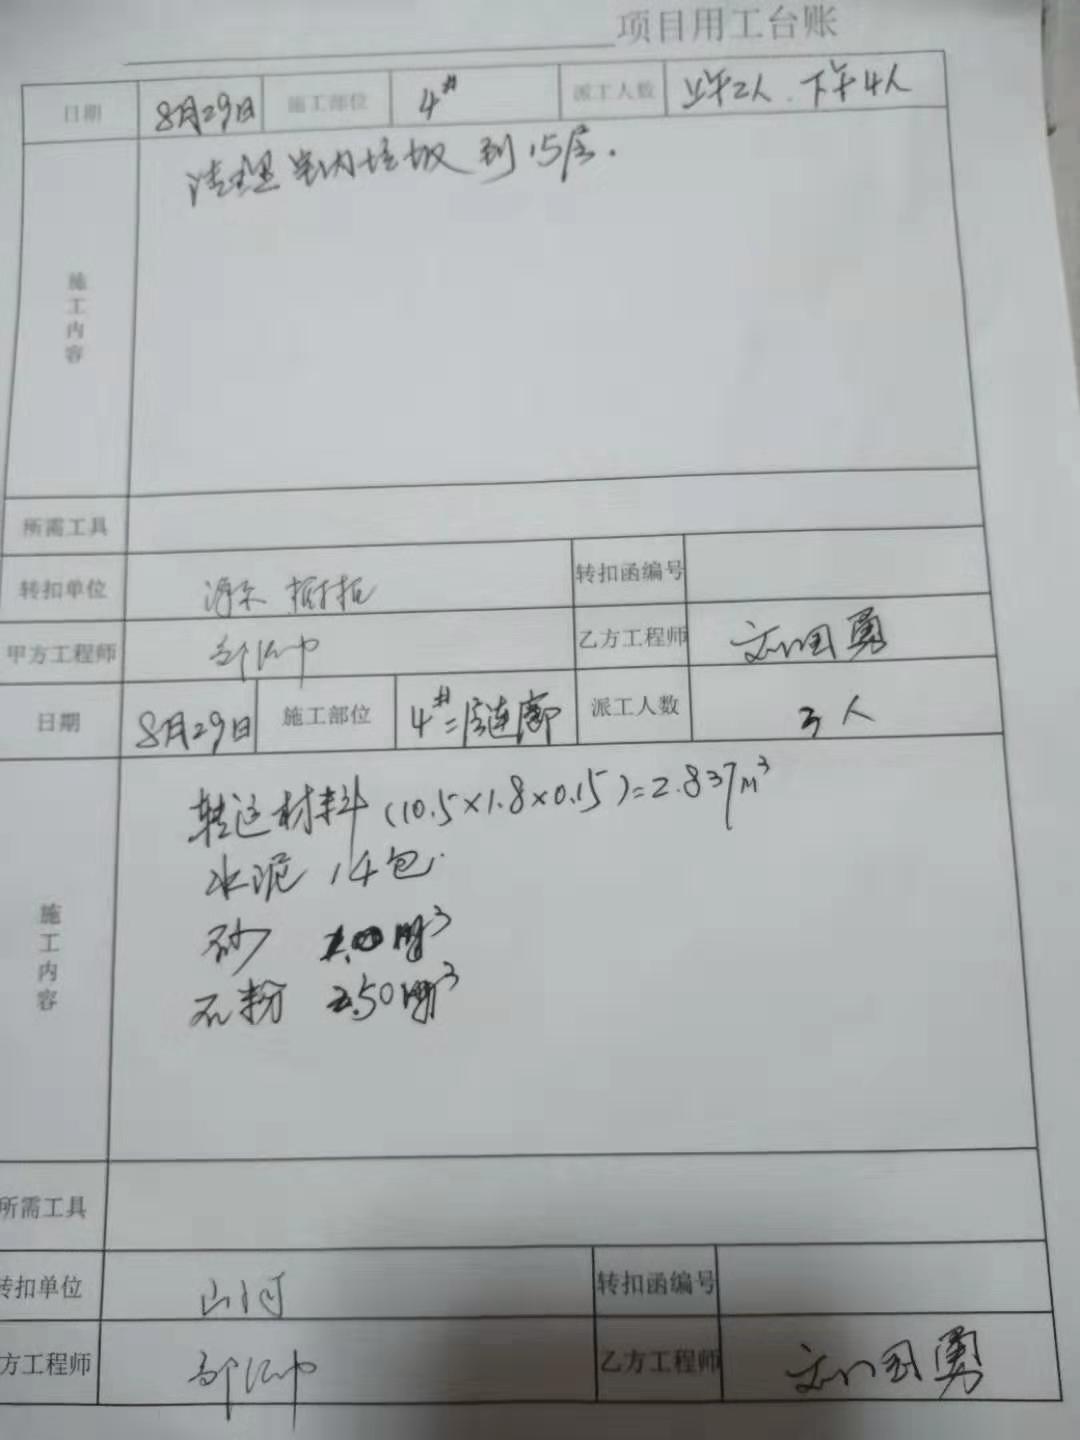 项目用工台账
日期 8月29日 施工部位 4# 派工人数 上午2人. 下午4人
施工内容 清理室内垃圾到15层.
所需工具
转扣单位 转扣函编号
甲方工程师 乙方工程师 刘国勇
日期 8月29日 施工部位 4#二层连廊 派工人数 3人
施工内容 转运材料(10.5×1.8×0.15)=2.837m³
水泥 14包.
砂 m³
石粉 2.50m³
所需工具
转扣单位 山河 转扣函编号
方工程师 乙方工程师 刘国勇